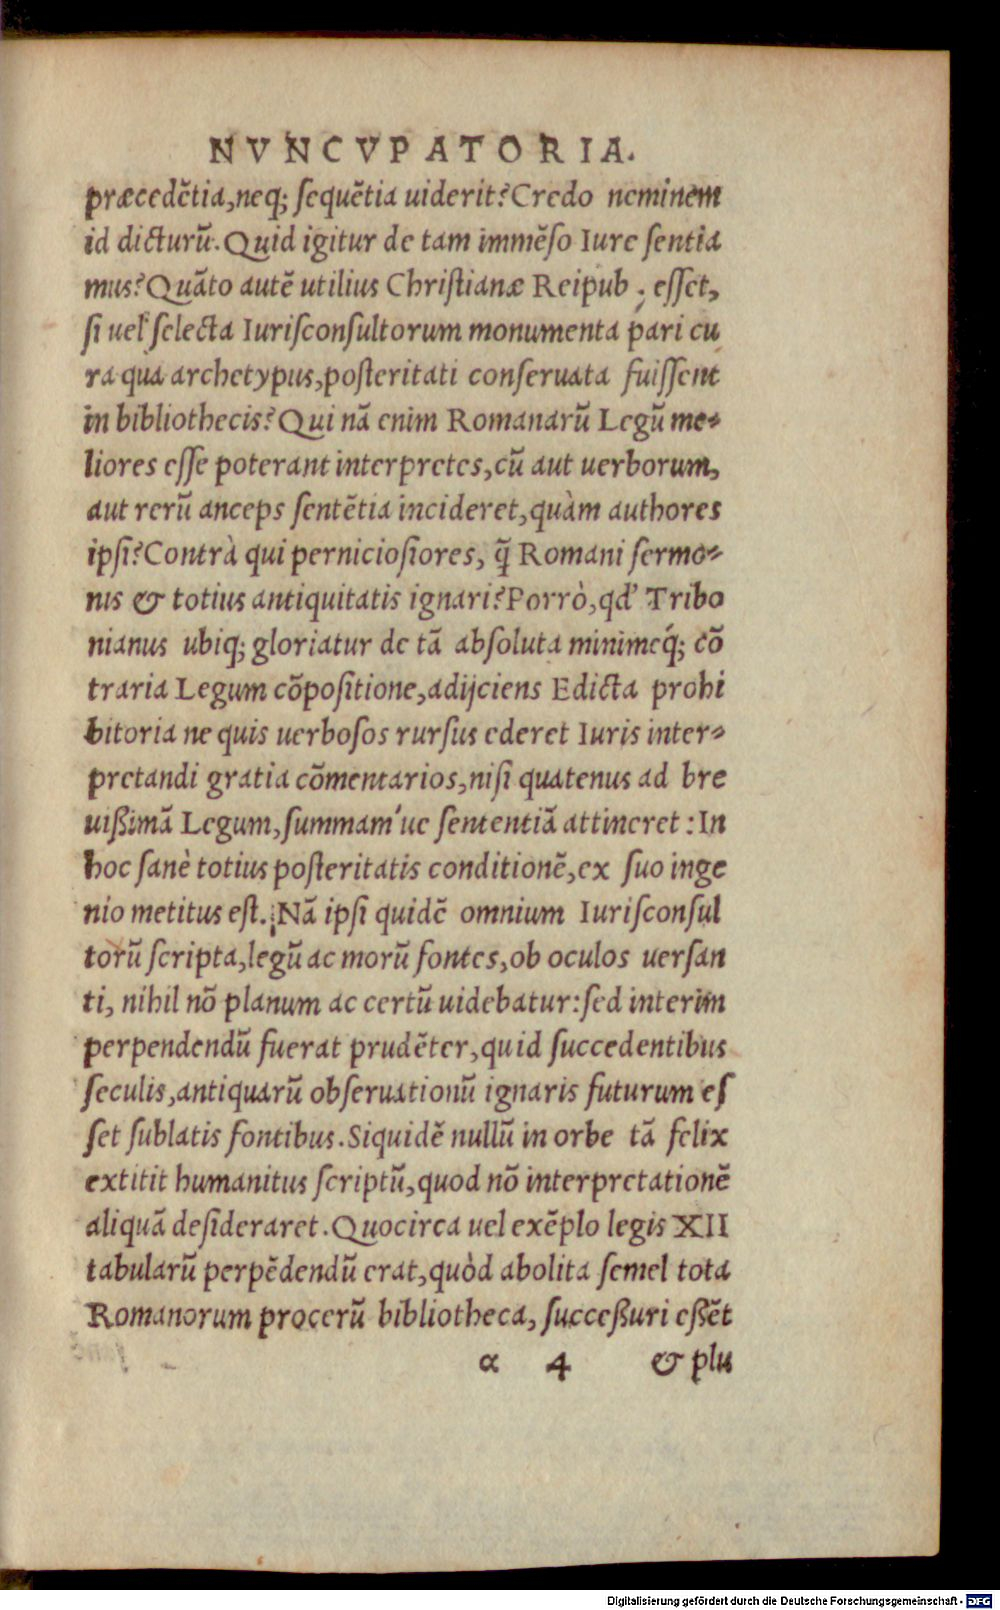 NVNCVPATORIA.
præcedẽtia,neq; ſequẽtia uiderit? Credo neminem
id dicturũ. Quid igitur de tam immẽſo Iure ſentia
mus? Quãto autẽ utilius Chriſtianæ Reipub. eſſet,
ſi uel ſelecta Iuriſconſultorum monumenta pari cu
ra qua archetypus,poſteritati conſeruata fuiſſent
in bibliothecis? Qui nã enim Romanarũ Legũ me-
liores eſſe poterant interpretes,cũ aut uerborum,
aut rerũ anceps ſentẽtia incideret,quàm authores
ipſi? Contrà qui pernicioſiores, q̃ Romani ſermo-
nis & totius antiquitatis ignari? Porrò,qd' Tribo
nianus ubiq; gloriatur de tã abſoluta minimeq́; cõ
traria Legum cõpoſitione,adijciens Edicta prohi
bitoria ne quis uerboſos rurſus ederet Iuris inter-
pretandi gratia cõmentarios,niſi quatenus ad bre
uißimã Legum,ſummam'ue ſententiã attineret: In
hoc ſanè totius poſteritatis conditionẽ,ex ſuo inge
nio metitus eſt. Nã ipſi quidẽ omnium Iuriſconſul
torũ ſcripta,legũ ac morũ fontes,ob oculos uerſan
ti, nihil nõ planum ac certũ uidebatur: ſed interim
perpendendũ fuerat prudẽter,quid ſuccedentibus
ſeculis,antiquarũ obſeruationũ ignaris futurum eſ
ſet ſublatis fontibus. Siquidẽ nullũ in orbe tã felix
extitit humanitus ſcriptũ,quod nõ interpretationẽ
aliquã deſideraret. Quocirca uel exẽplo legis XII
tabularũ perpẽdendũ erat,quòd abolita ſemel tota
Romanorum procerũ bibliotheca, ſucceßuri eßẽt
α 4 & plu
Digitalisierung gefördert durch die Deutsche Forschungsgemeinschaft - DFG